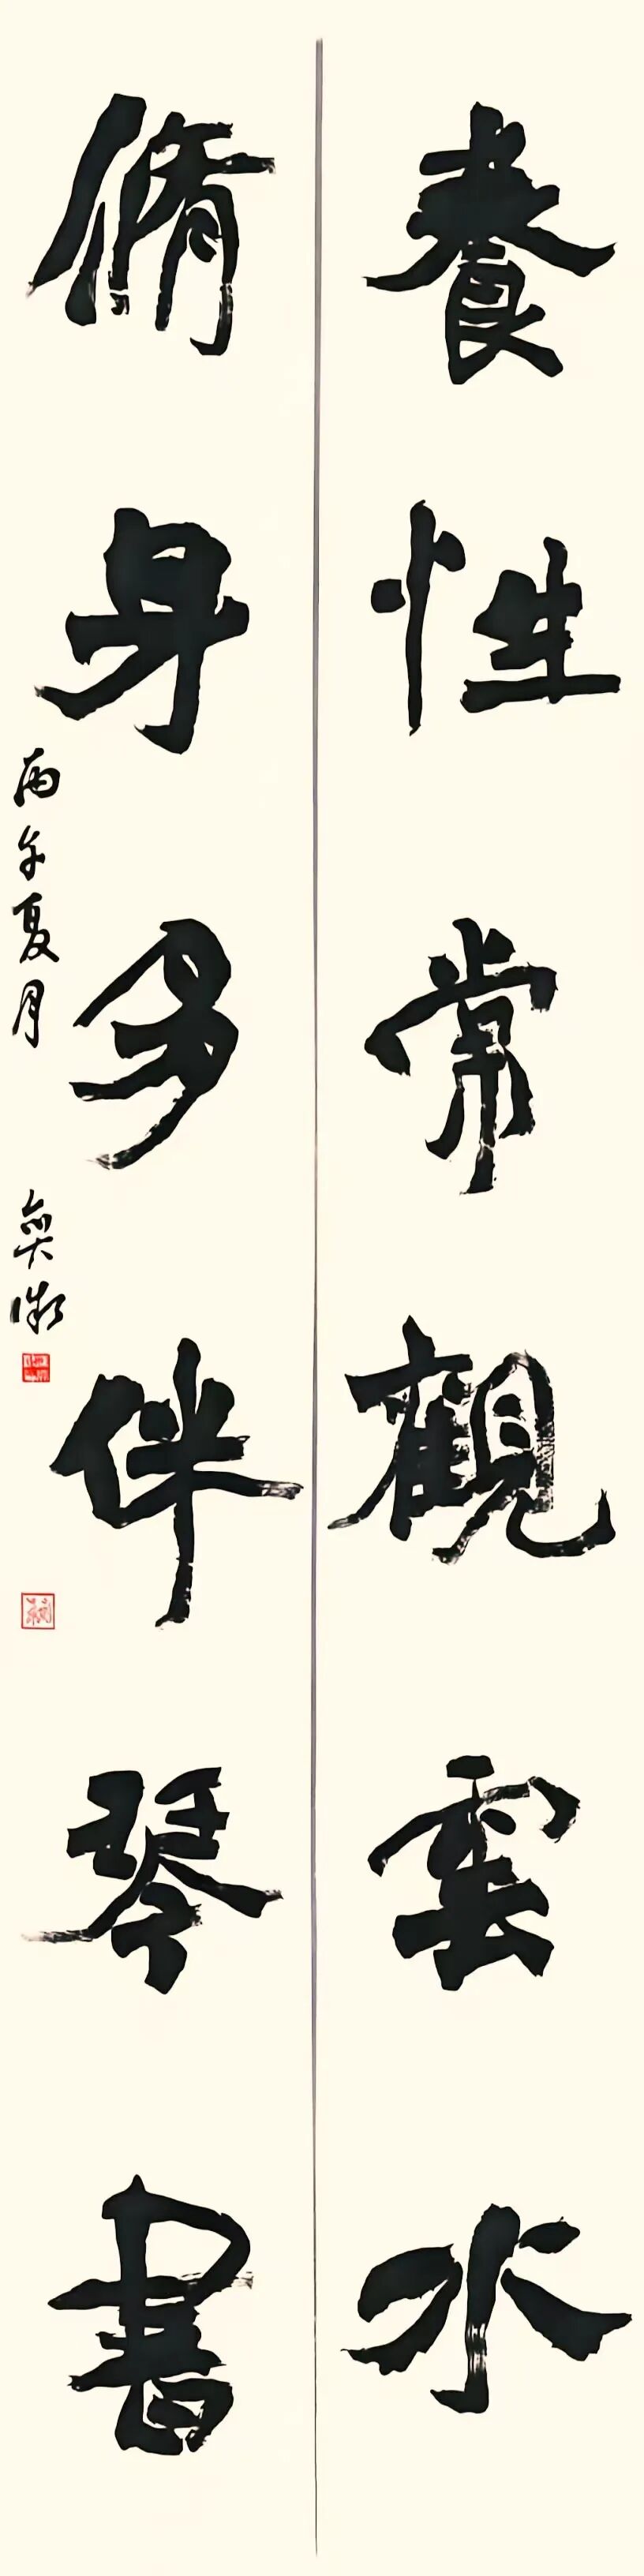 養性常觀雲水
脩身多伴琴書
丙午夏月